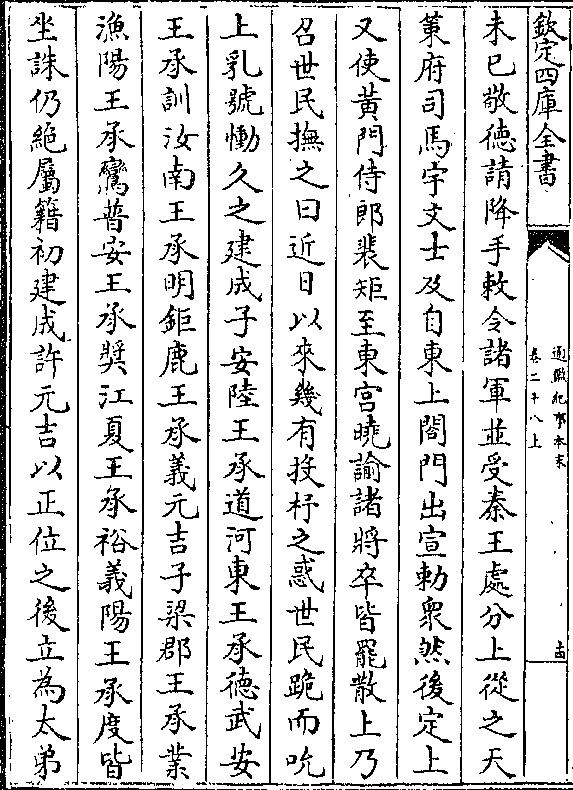 欽定四庫全書
通鑑紀事本末
卷二十八上
未已敬德請降手敕令諸軍並受秦王處分上從之天
策府司馬宇文士及自東上閤門出宣勅衆然後定上
又使黃門侍郎裴矩至東宮曉諭諸將卒皆罷散上乃
召世民撫之曰近日以來幾有投杼之惑世民跪而吮
上乳號慟久之建成子安陸王承道河東王承德武安
王承訓汝南王承明鉅鹿王承義元吉子梁郡王承業
漁陽王承鸞普安王承奬江夏王承裕義陽王承度皆
坐誅仍絶屬籍初建成許元吉以正位之後立為太弟